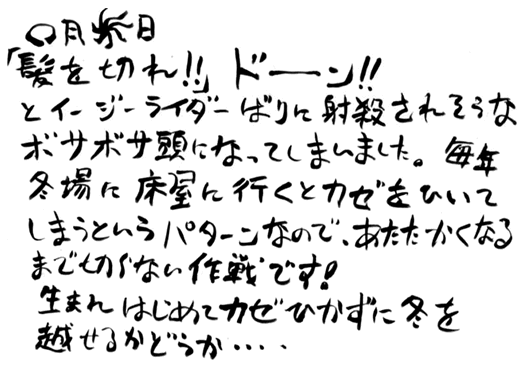 〇月※日
「髪を切れ!!」ドーン!!
とイージーライダーばりに射殺されそうな
ボサボサ頭になってしまいました。毎年
冬場に床屋に行くとカゼをひいて
しまうというパターンなので、あたたかくなる
まで切らない作戦です!
生まれはじめてカゼひかずに冬を
越せるかどうか‥‥